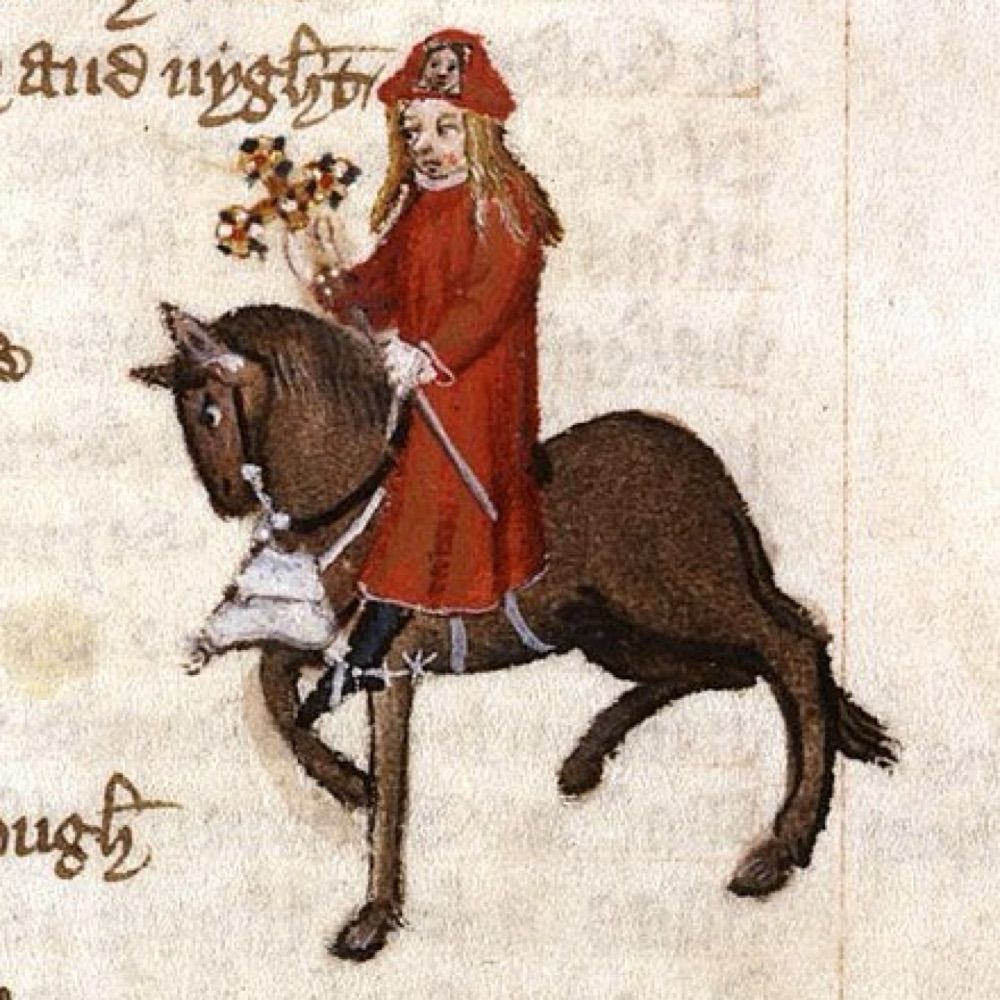 and nyght
ough